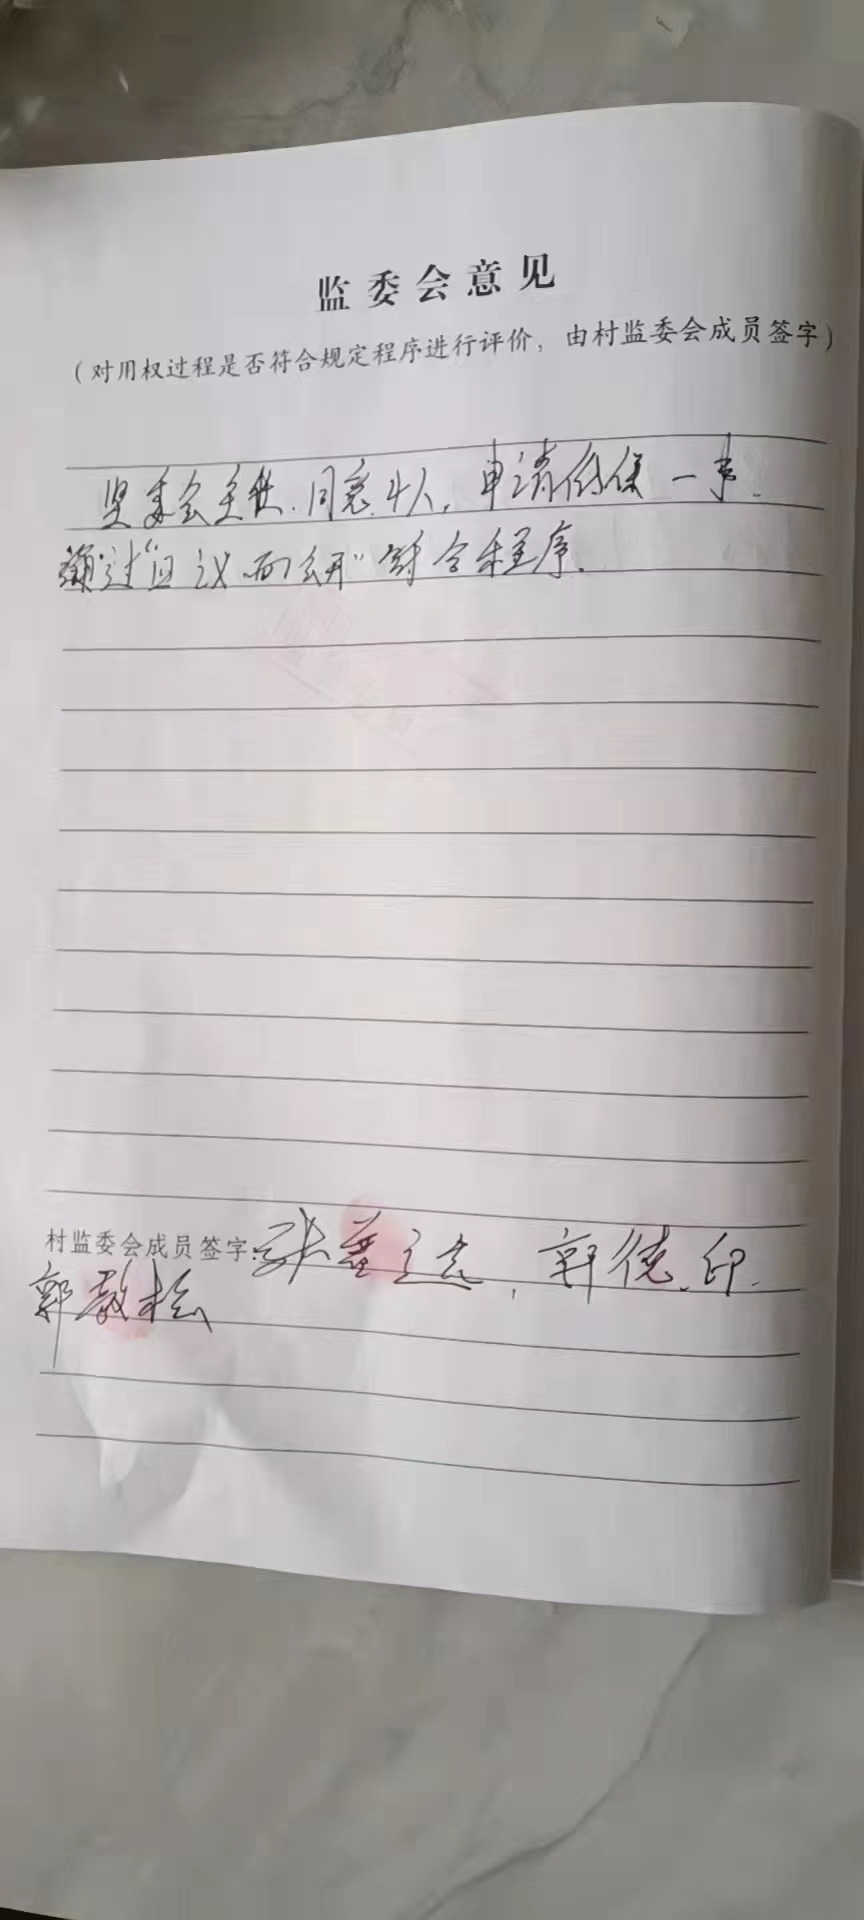 监委会意见
（对用权过程是否符合规定程序进行评价，由村监委会成员签字）
委会 同意 4人，申请低保一事.
通过“四议两公开”符合程序.
村监委会成员签字：张 远，郭德印.
郭教松